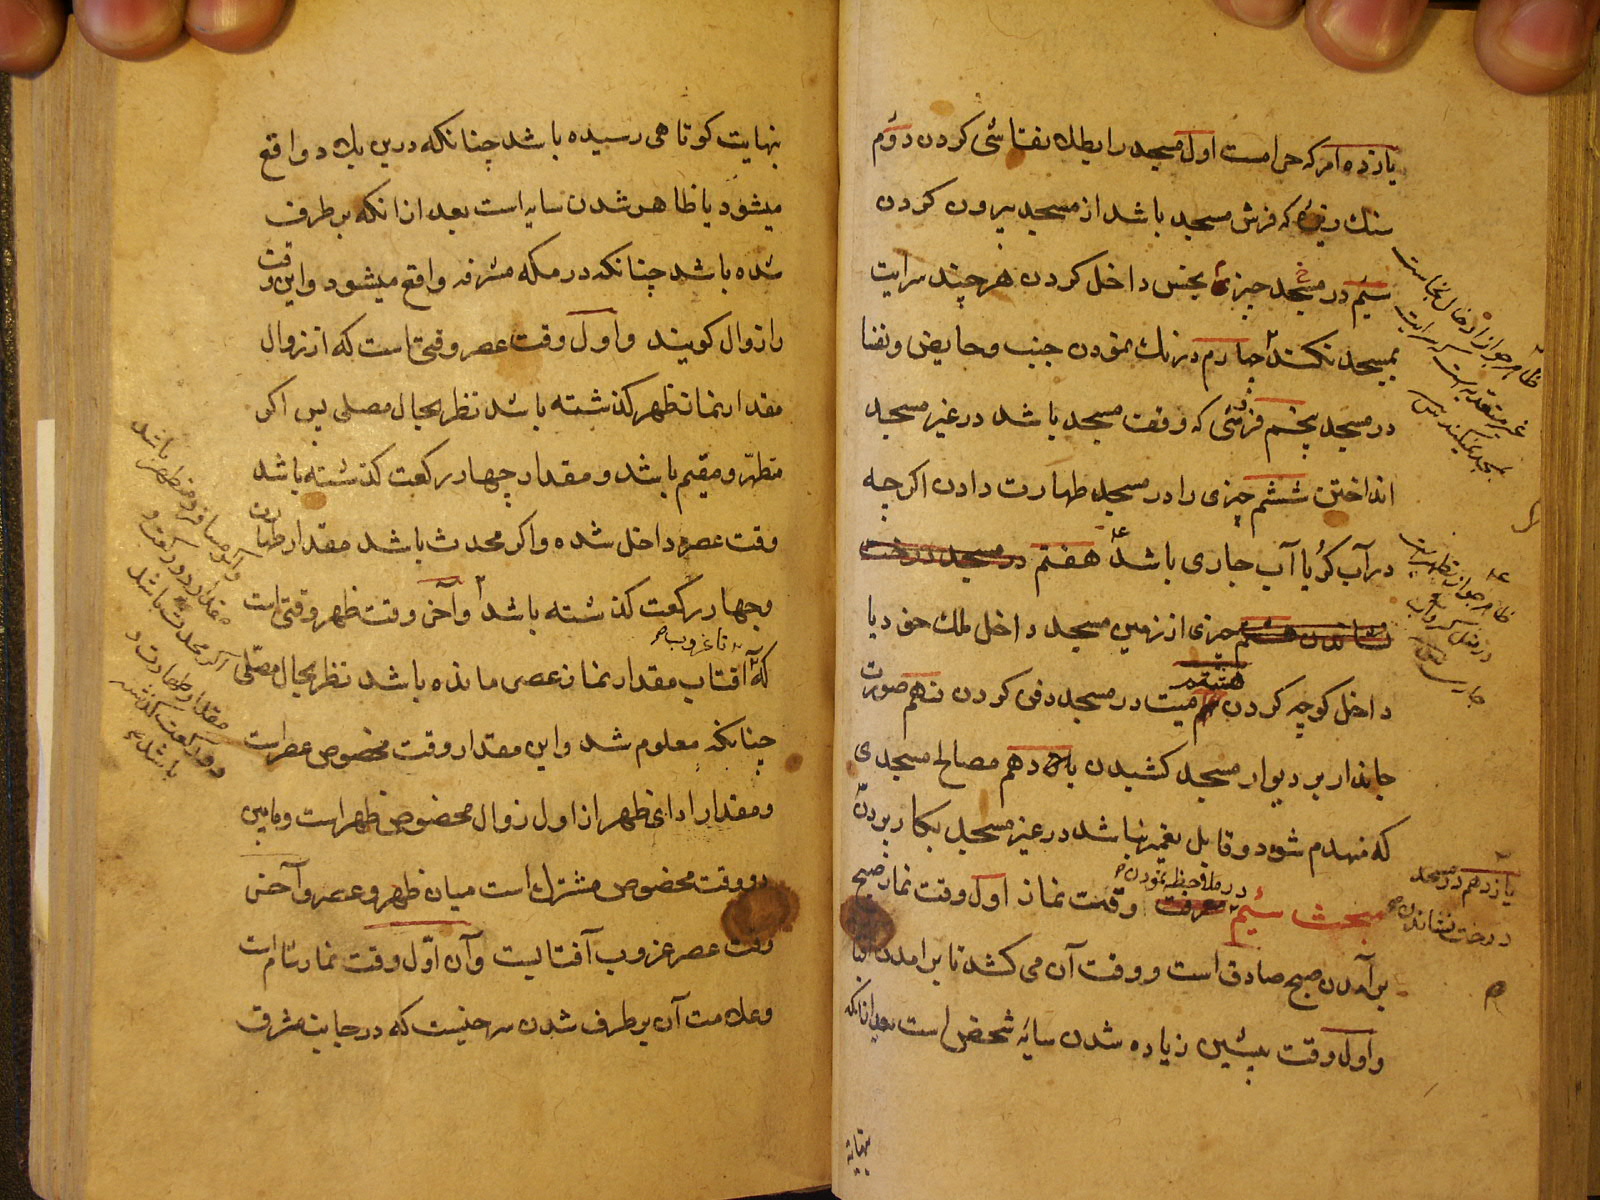 یازده امر که حرامست اول مسجد را بطلا نقاشی کردن دوم
سنک ریزه که فرش مسجد باشد از مسجد بیرون کردن
سیم در مسجد چیزی نجس داخل کردن هر چند سرایت
بمسجد نکند چهارم درنک نمودن جنب و حایض و نفسا
در مسجد پنجم فرشی که وقف مسجد باشد در غیر مسجد
انداختن ششم چیزی را در مسجد طهارت دادن اکرچه
در آب کر یا آب جاری باشد هفتم در مسجد درخت
نشاندن هشتم چیزی از زمین مسجد داخل ملک خود یا
هشتم
داخل کوچه کردن میت در مسجد دفن کردن نهم صورت
جاندار بر دیوار مسجد کشیدن دهم مصالح مسجدی
که منهدم شود و قابل تعمیر نباشد در غیر مسجد بکار بردن
در ملاحظه نمودن
مبحث سیم معرفت وقت نماز اول وقت نماز صبح
بر آمدن صبح صادق است و وقت آن می کشد تا بر امدن
و اول وقت پیشین زیاده شدن سایه شخص است بعد از آنکه
ظاهر جواز ادخال نجاست
غیر متعدیه است که سرایت
بمسجد نمیکند
یازدهم در مسجد
درخت نشاندن
نهایت کوتاهی رسیده باشد چنانکه درین بلاد واقع
میشود یا ظاهر شدن سایه است بعد از انکه بر طرف
شده باشد چنانکه در مکه مشرفه واقع میشود و این وقت
را زوال کویند و اول وقت عصر وقتی است که از زوال
مقدار نماز ظهر کذشته باشد نظر بحال مصلی پس اکر
متطهر و مقیم باشد و مقدار چهار رکعت کذشته باشد
وقت عصر داخل شده و اکر محدث باشد مقدار طهارت
و چهار رکعت کذشته باشد و آخر وقت ظهر وقتی است
تا غروب
که آفتاب مقدار نماز عصر مانده باشد نظر بحال مصلی
چنانکه معلوم شد و این مقدار وقت مخصوص عصر است
و مقدار ادای ظهر از اول زوال مخصوص ظهر است و مابین
دو وقت مخصوص مشترک است میان ظهر و عصر و آخر
وقت عصر غروب آفتابست و آن اول وقت نماز شام است
و علامت آن بر طرف شدن سرخیست که در جانب مشرق
و اکر مسافر و متطهر باشد
مقدار دو رکعت و
اکر محدث باشد
مقدار طهارت و
دو رکعت کذشته
باشد